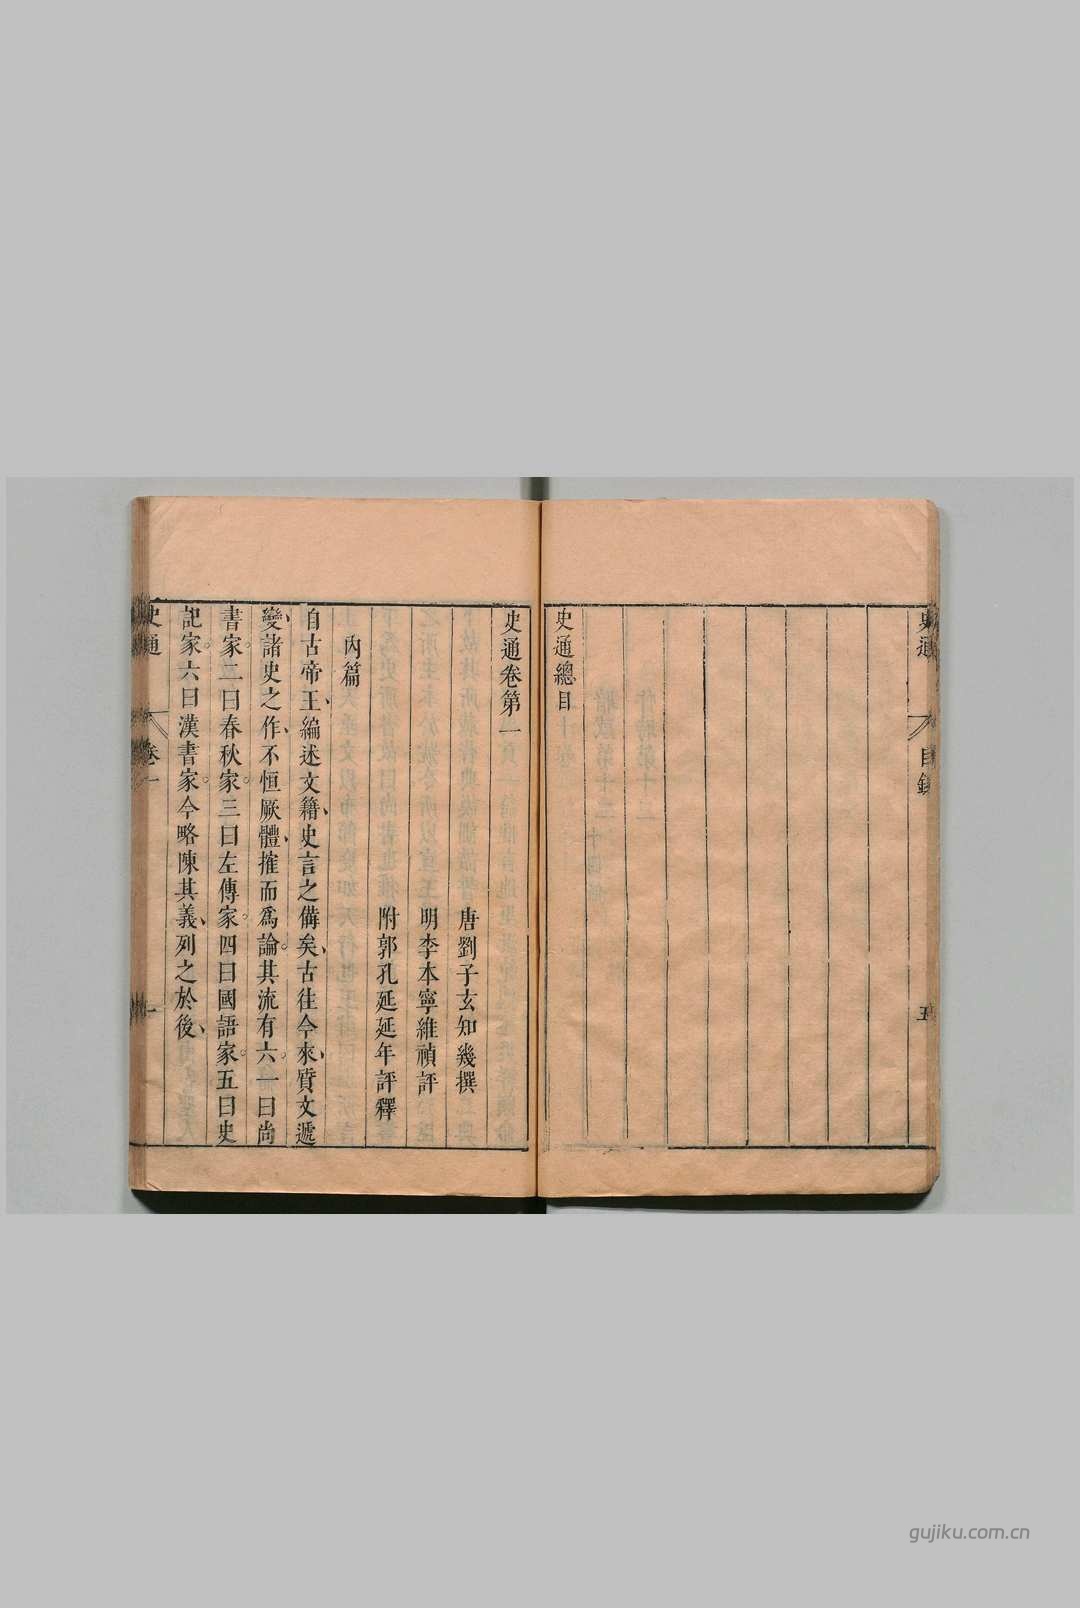 史通
目錄
五
史通總目
史通卷第一
唐劉子玄知幾撰
明李本寧維禎評
附郭孔延延年評釋
內篇
自古帝王編述文籍史言之備矣古往今來質文遞
變諸史之作不恒厥體搉而爲論其流有六一曰尚
書家二曰春秋家三曰左傳家四曰國語家五曰史
記家六曰漢書家今略陳其義列之於後
史通
卷一
一
gujiku.com.cn